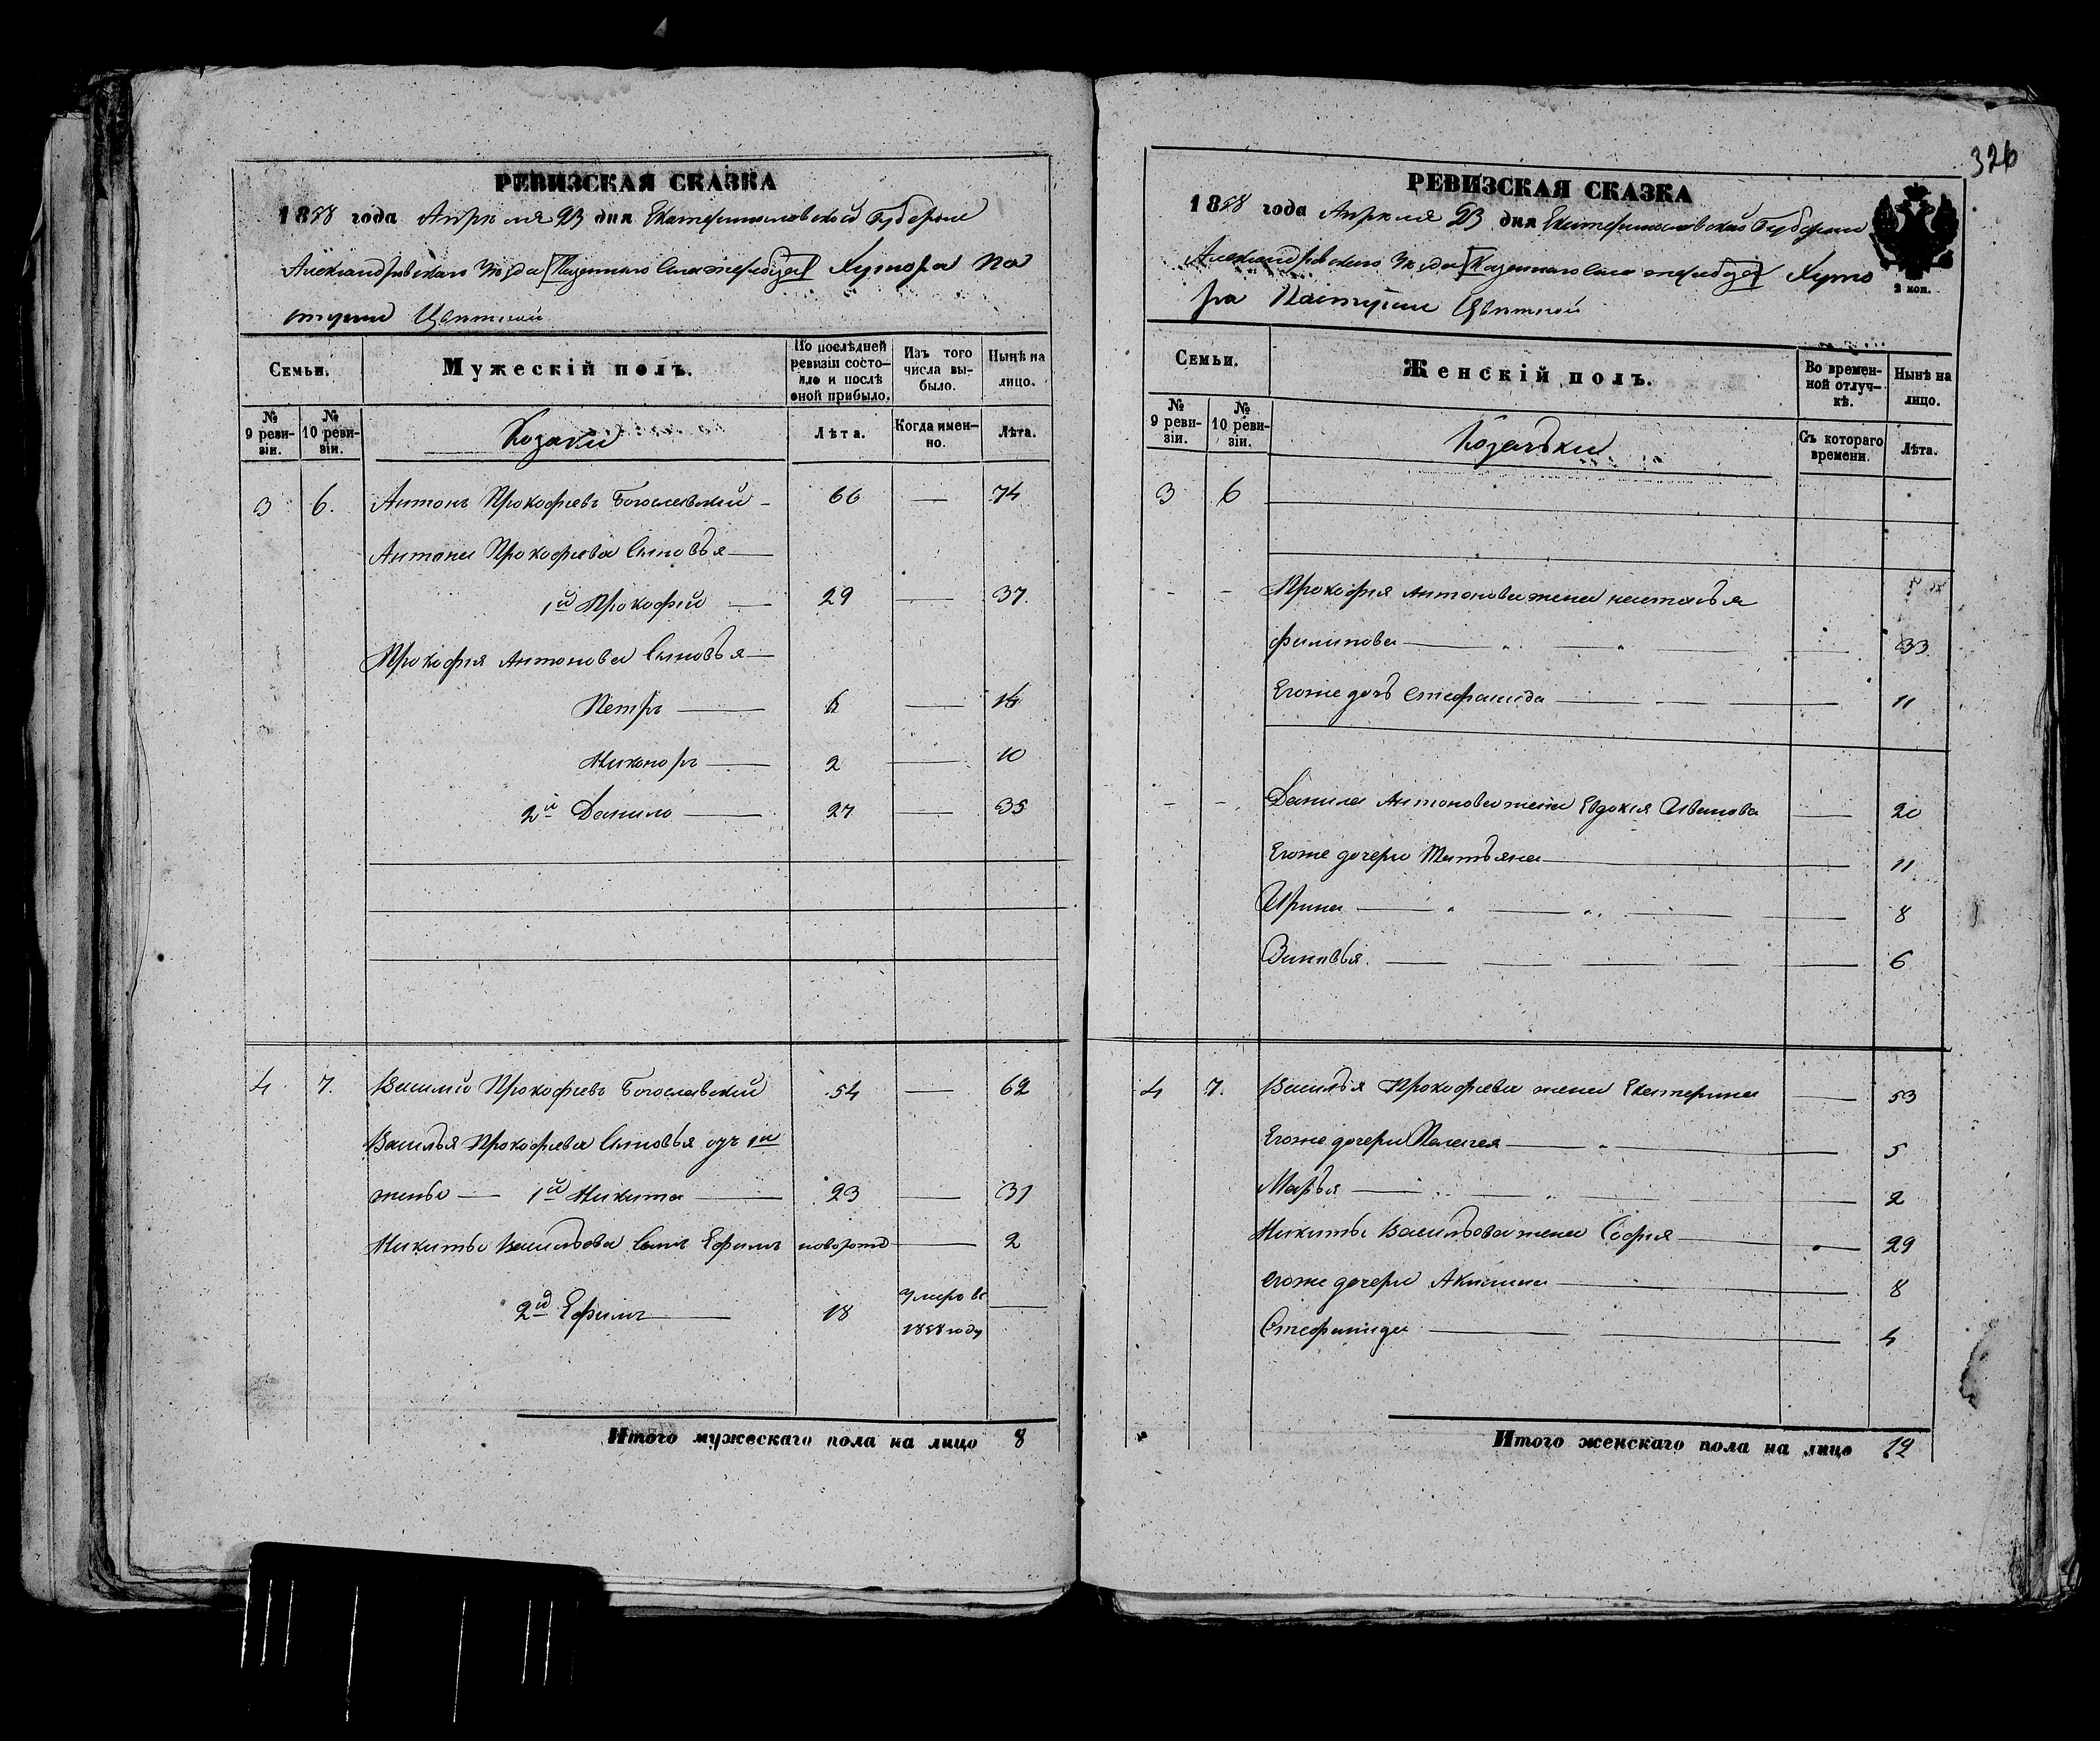 РЕВИЗСКАЯ СКАЗКА
1858 года Апреля 23 дня Екатеринославской Губернии
Александровского Уезда Казенного Села Хутора Па
стушей Цвитной
Семьи.
Мужескій полъ.
По послѣдней ревизіи состояло и послѣ оной прибыло.
Изъ того числа выбыло.
Нынѣ на лицо.
№ 9 ревизіи.
№ 10 ревизіи.
Козаки
Лѣта.
Когда именно.
Лѣта.
3 6. Антонъ Прокофіевъ Богославскій 66 — 74
Антона Прокофіева Сыновья
1й Прокофій 29 — 37.
Прокофія Антонова Сыновья
Петръ 6 — 14
Никоноръ 2 — 10
2й Данило 27 — 35
4 7. Василій Прокофіевъ Богославскій 54 — 62
Василья Прокофіева Сыновья отъ 1й
жены — 1й Никита 23 — 31
Никиты Васильева Сынъ Ефимъ новорожд — 2
2й Ефимъ 18 умеръ въ 1858 году —
Итого мужескаго пола на лицо 8
326
РЕВИЗСКАЯ СКАЗКА
1858 года Апреля 23 дня Екатеринославской Губернии
Александровского Уезда Казенного Села Хуто
ра Пастушей Цвитной
2 коп.
Семьи.
Женскій полъ.
Во временной отлучкѣ.
Нынѣ на лицо.
№ 9 ревизіи.
№ 10 ревизіи.
Козачьки
Съ котораго времени.
Лѣта.
3 6
Прокофія Антонова жена настасья
филипова 33
Егоже дочь стефанида 11
Данила Антонова жена Евдокія Иванова 20
Егоже дочери Татьяна 11
Ирина 8
Зиновья 6
4 7. Василья Прокофіева жена Екатерина 53
Егоже дочери Палагея 5
Марья 2
Никиты Васильева жена Софія 29
егоже дочери Акилина 8
Стефанида 4
Итого женскаго пола на лицо 12